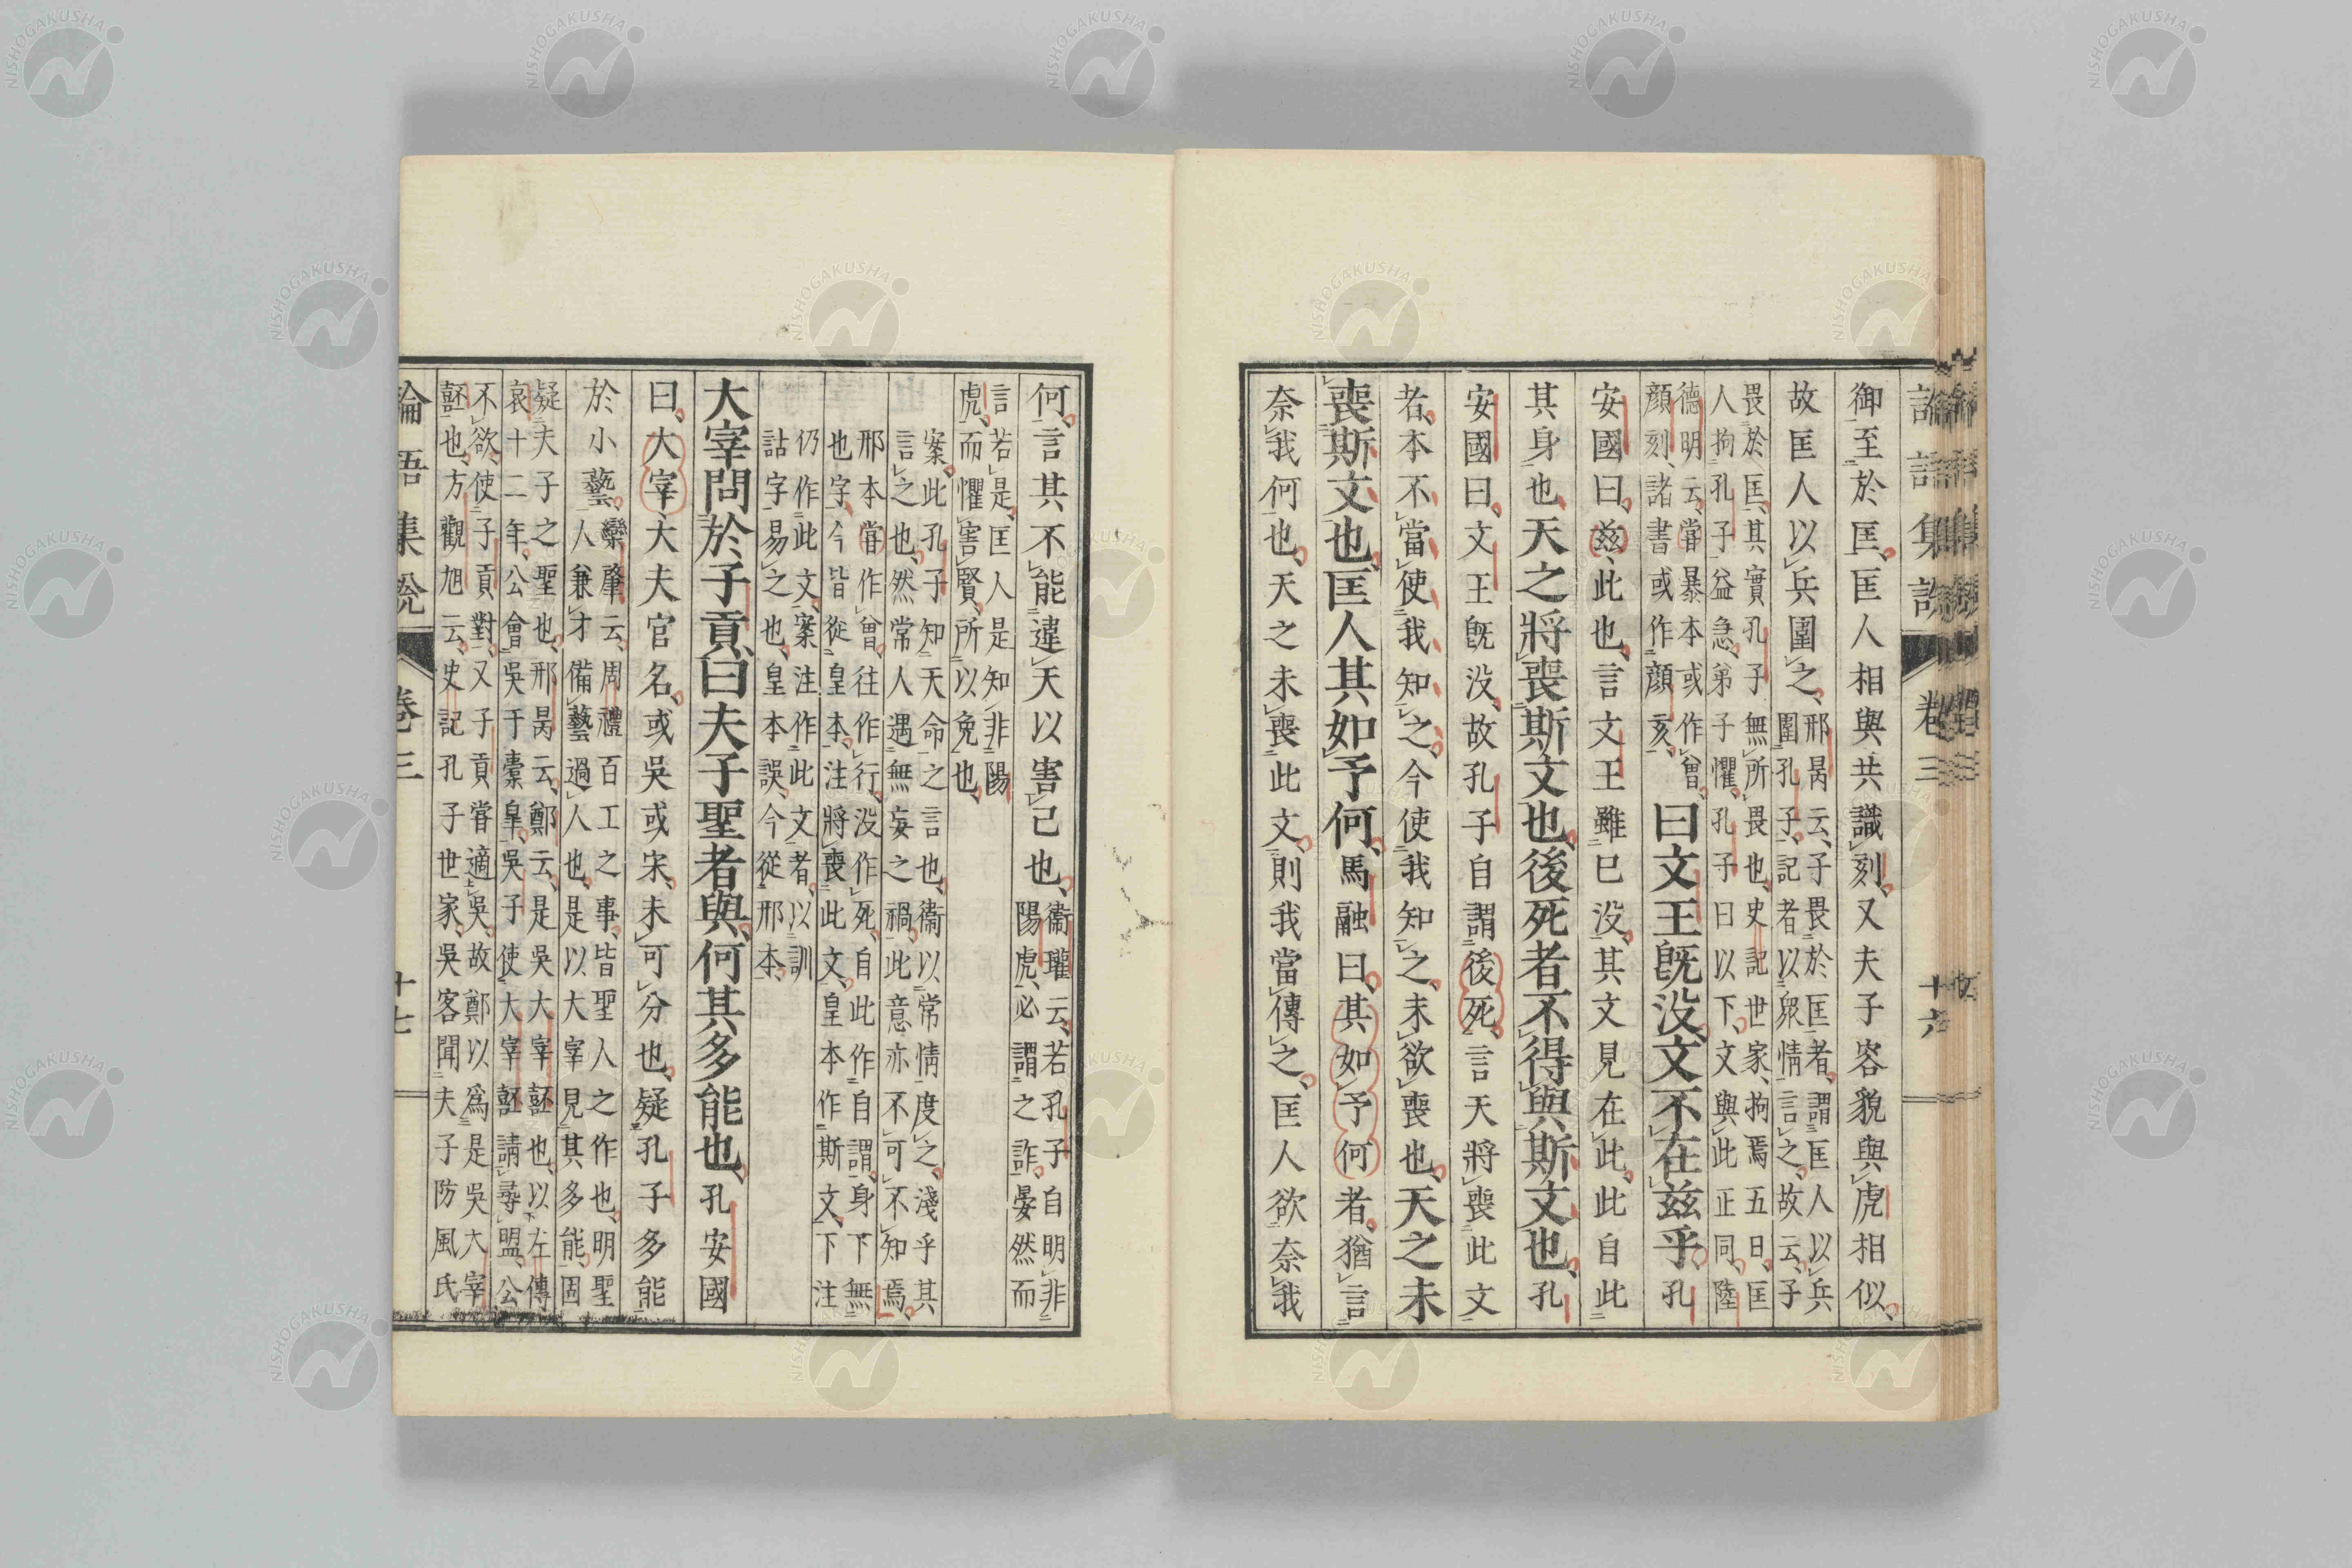 御至於匡、匡人相與共識刻、又夫子容貌與虎相似、
故匡人以兵圍之、邢昺云、子畏於匡者、謂匡人以兵
圍孔子、記者以衆情言之、故云、子
畏於匡、其實孔子無所畏也、史記世家、拘焉五日、匡
人拘孔子益急、弟子懼、孔子曰以下、文與此正同、陸
德明云、甞暴本或作曾、
顔刻、諸書或作顔亥、
曰文王旣没、文不在茲乎、孔
安國曰、茲、此也、言文王雖已没、其文見在此、此自此
其身也、天之將喪斯文也、後死者不得與斯文也、孔
安國曰、文王旣没、故孔子自謂後死、言天將喪此文
者、本不當使我知之、今使我知之、未欲喪也、天之未
喪斯文也、匡人其如予何、馬融曰、其如予何者、猶言
奈我何也、天之未喪此文、則我當傳之、匡人欲奈我
論語集說 卷三 十六
何、言其不能違天以害己也、衞瓘云、若孔子自明非
陽虎、必謂之詐、晏然而
言若是、匡人是知非陽
虎、而懼害賢、所以免也、
案、此孔子知天命之言也、衞以常情度之、淺乎其
言之也、然常人遇無妄之禍、此意亦不可不知焉、
邢本甞作曾、往作行、没作死、自此作自謂、身下無
也字、今皆從皇本、注將喪此文、皇本作斯文、下注
仍作此文、案注作此文者、以訓
詁字易之也、皇本誤、今從邢本、
大宰問於子貢、曰夫子聖者與、何其多能也、孔安國
曰、大宰、大夫官名、或吳或宋、未可分也、疑孔子多能
於小藝、欒肇云、周禮百工之事、皆聖人之作也、明聖
人兼才備藝過人也、是以大宰見其多能、固
疑夫子之聖也、邢昺云、鄭云、是吳大宰嚭也、以左傳
哀十二年、公會吳于橐皐、吳子使大宰嚭請尋盟、公
不欲、使子貢對、又子貢甞適吳、故鄭以爲是吳大宰
嚭也、方觀旭云、史記孔子世家、吳客聞夫子防風氏
論語集說 卷三 十七
NISHOGAKUSHA